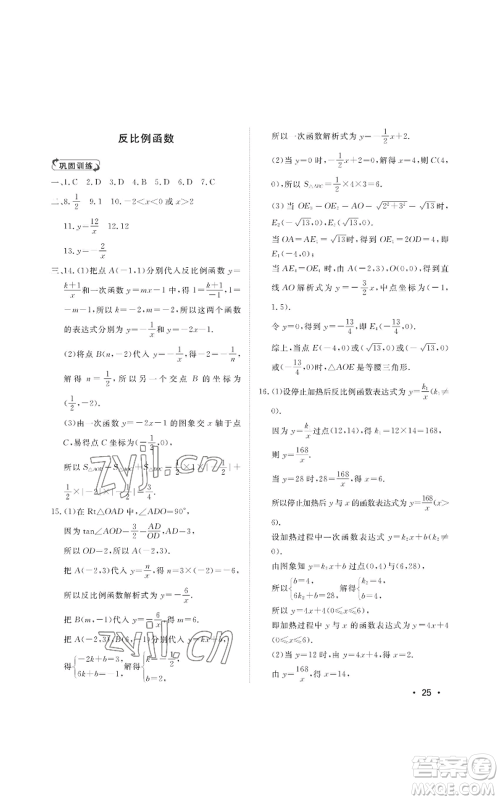 反比例函数
巩固训练
一、1. C 2. D 3. D 4. C 5. C 6. D 7. D
二、8. 1/2 9. 1 10. -2<x<0 或 x>2
11. y=12/x 12. 12
13. y=-2/x
三、14. (1)把点 A(-1,1)分别代入反比例函数 y=
k/x和一次函数 y=mx-1 中,得 1=k/-1,1=
-m-1,所以 k=-1,m=-2,所以这两个函数
的表达式分别为 y=-1/x和 y=-2x-1.
(2)将点 B(n,-2)代入 y=-1/x,得-2=-1/n,
解得 n=1/2,所以另一个交点 B 的坐标为
(1/2,-2).
(3)由一次函数 y=-2x-1 的图象交 y 轴于点
C,易得点 C 坐标为(0,-1),
所以
15. (1)在 Rt△OAD 中,∠ADO=90°,
因为 tan∠AOD=3/2=AD/OD,
所以 OD=2,所以 A(-2,3).
把 A(-2,3)代入 y=n/x,得 n=3×(-2)=-6,
所以反比例函数解析式为 y=-6/x.
把 B(m,-1)代入 y=-6/x,得 m=6.
把 A(-2,3),B(6,-1)代入 y=kx+b,
得{-2k+b=3, 6k+b=-1, 解得{k=-1/2, b=2,
所以一次函数解析式为 y=-1/2x+2.
(2)当 y=0 时,-1/2x+2=0,解得 x=4,则 C(4,
0),所以 S△AOC=1/2×4×3=6.
(3)当 OE3=OE2=AO=√2²+3²=√13,即
E2(-√13,0),E3(√13,0);
当 OA=AE1=√13时,得 OE1=2OD=4,即
E1(-4,0);
当 AE4=OE4时,由 A(-2,3),O(0,0)得到直
线 AO 解析式为 y=-3/2x,中点坐标为(-1,
1.5).
令 y=0,得 x=-13/4,即 E4(-13/4,0).
综上,当点 E(-4,0)或(√13,0)或(-√13,0)或
(-13/4,0)时,△AOE 是等腰三角形.
16. (1)设停止加热后反比例函数表达式为 y=k1/x(k1≠
0).
因为 y=k1/x过点(12,14),得 k1=12×14=168,
则 y=168/x;
当 y=28 时,28=168/x,得 x=6.
所以停止加热后 y 与 x 的函数表达式为 y=168/x(x>
6).
设加热过程中一次函数表达式为 y=k2x+b(k2≠0),
由图象知 y=k2x+b 过点(0,4)与(6,28),
所以{b=4, 6k2+b=28, 解得{k2=4, b=4,
所以 y=4x+4(0≤x≤6),
即加热过程中 y 与 x 的函数表达式为 y=4x+4(0≤x≤6).
(2)当 y=12 时,由 y=4x+4,得 x=2;
由 y=168/x,得 x=14,
· 25 ·
zyjl.cn